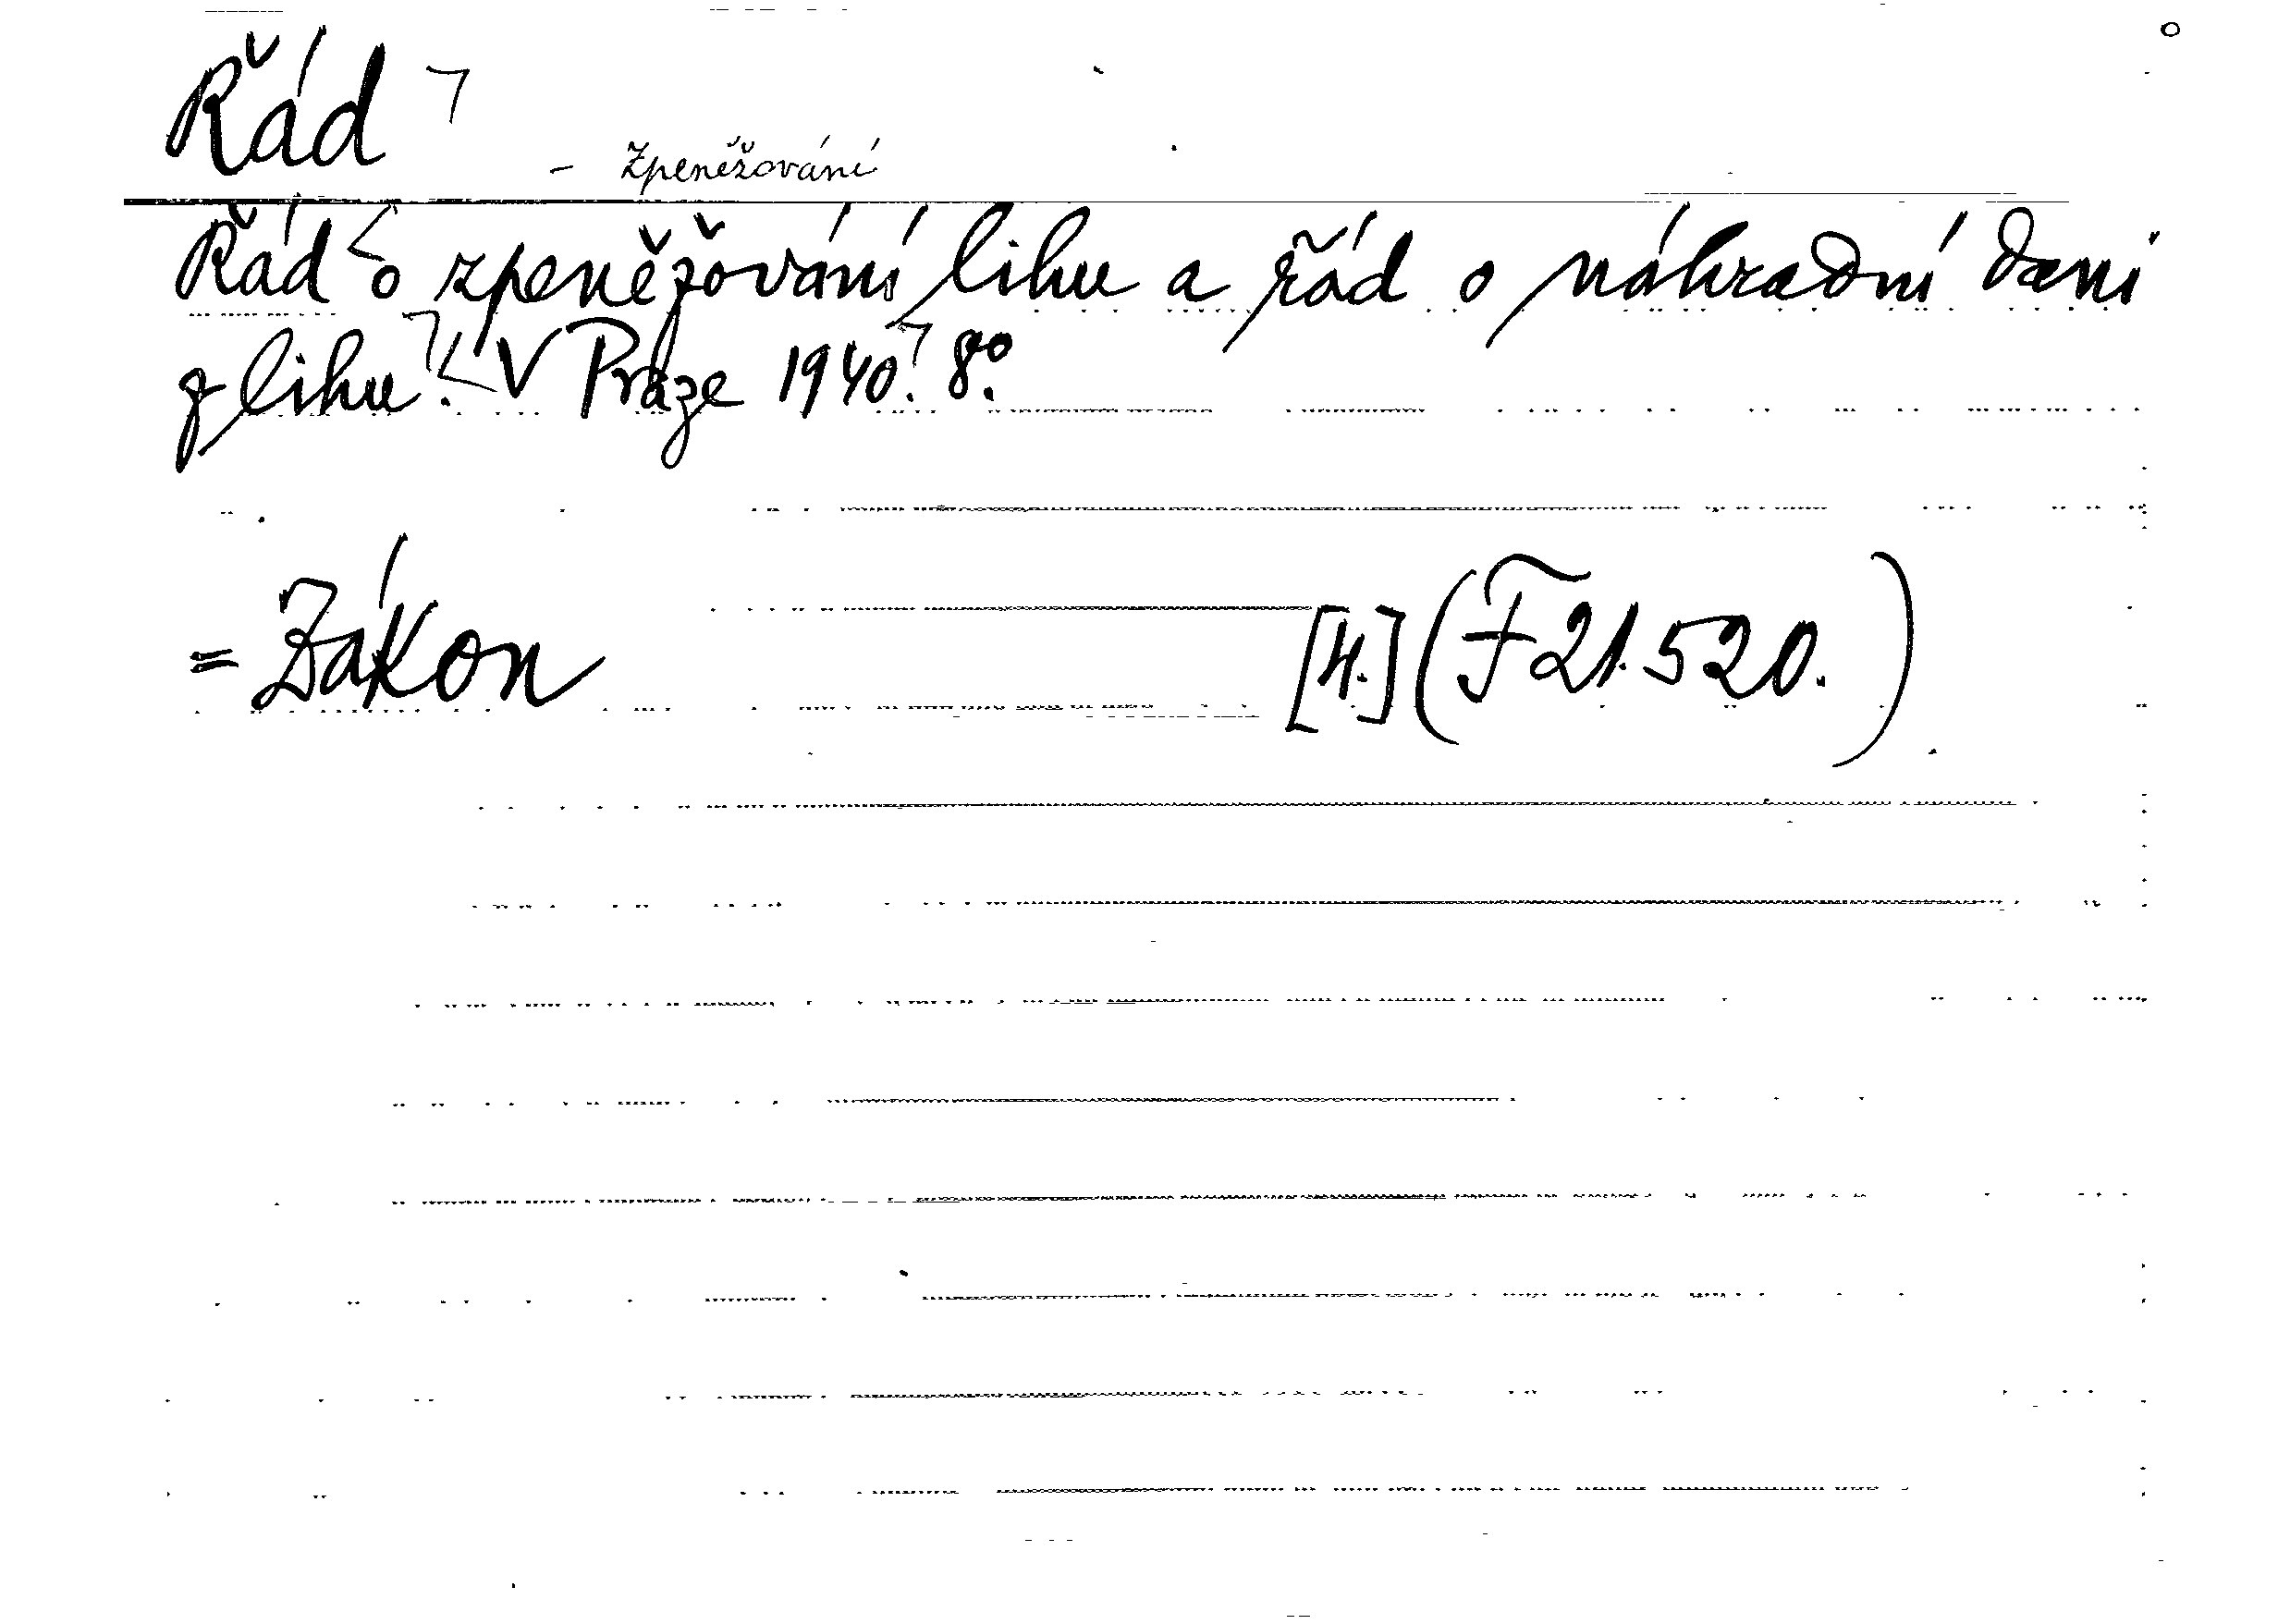 Řád
- Zpeněžování
Řád o zpeněžování lihu a řád o náhradní dani
z lihu. V Praze 1940. 8°.
= Zákon [4.] (F 21.520.)